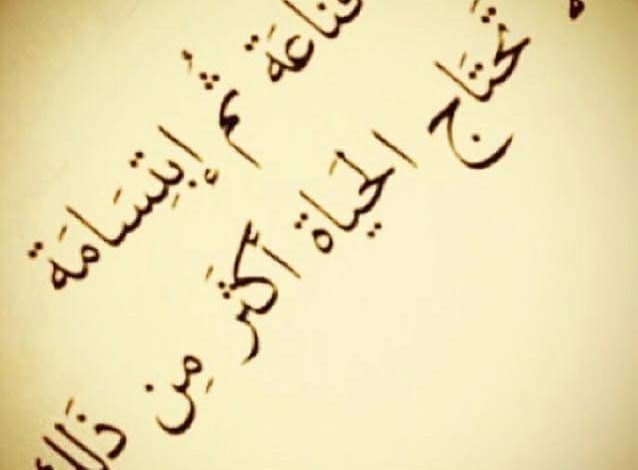 قناعة ثُم إبتِسَامَة
تَحتَاج الحَياة أكثَر مِن ذَلك